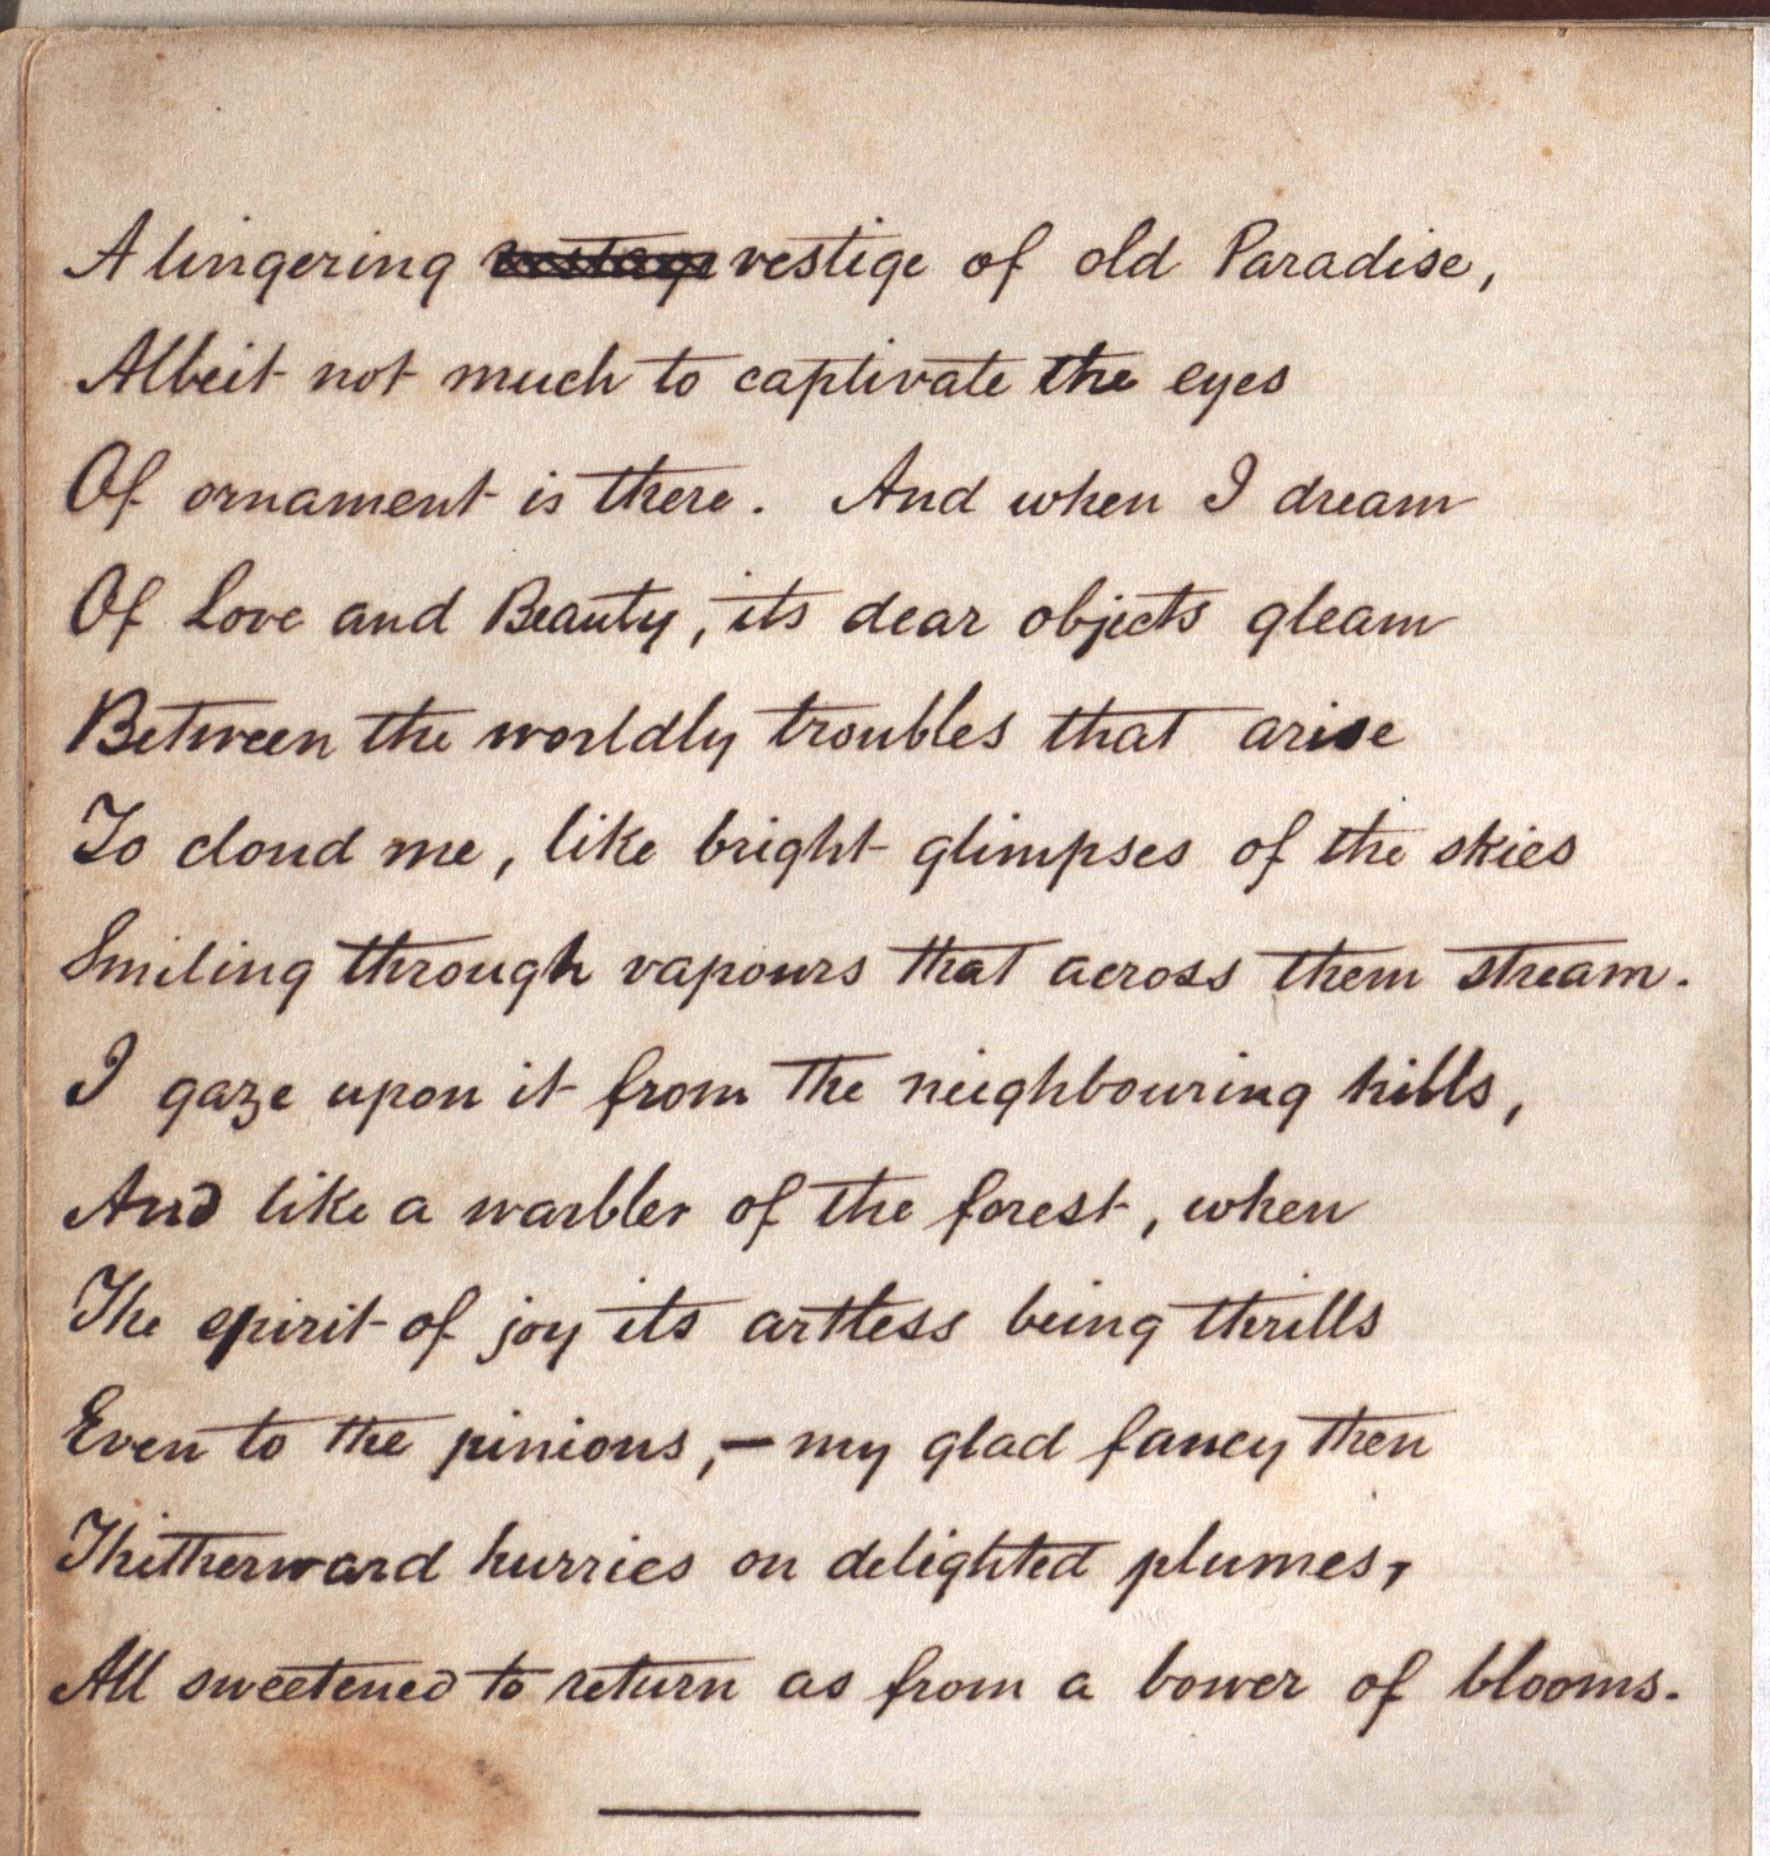 A lingering vestige of old Paradise,
Albeit not much to captivate the eyes
Of ornament is there. And when I dream
Of Love and Beauty, its dear objects gleam
Between the worldly troubles that arise
To cloud me, like bright glimpses of the skies
Smiling through vapours that across them stream.
I gaze upon it from the neighbouring hills,
And like a warbler of the forest, when
The spirit of joy its artless being thrills
Even to the pinions,— my glad fancy then
Thitherward hurries on delighted plumes,
All sweetened to return as from a bower of blooms.